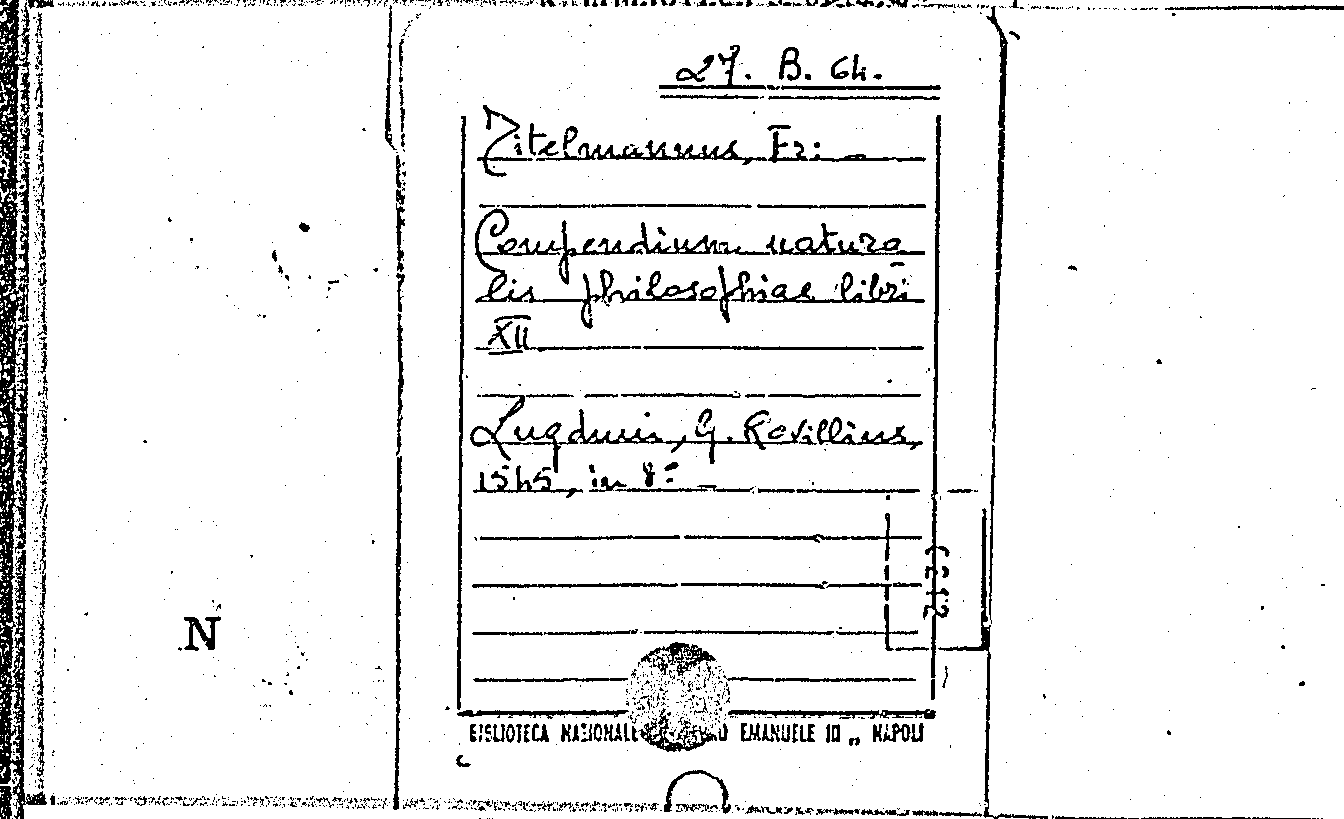 27. B. 64.
Zitelmannus, Fr: -
Compendium natura
lis philosophiae libri
XII
Lugduni, G. Rovillius,
1545, in 8º -
N
BIBLIOTECA NAZIONALE EMANUELE III „ NAPOLI